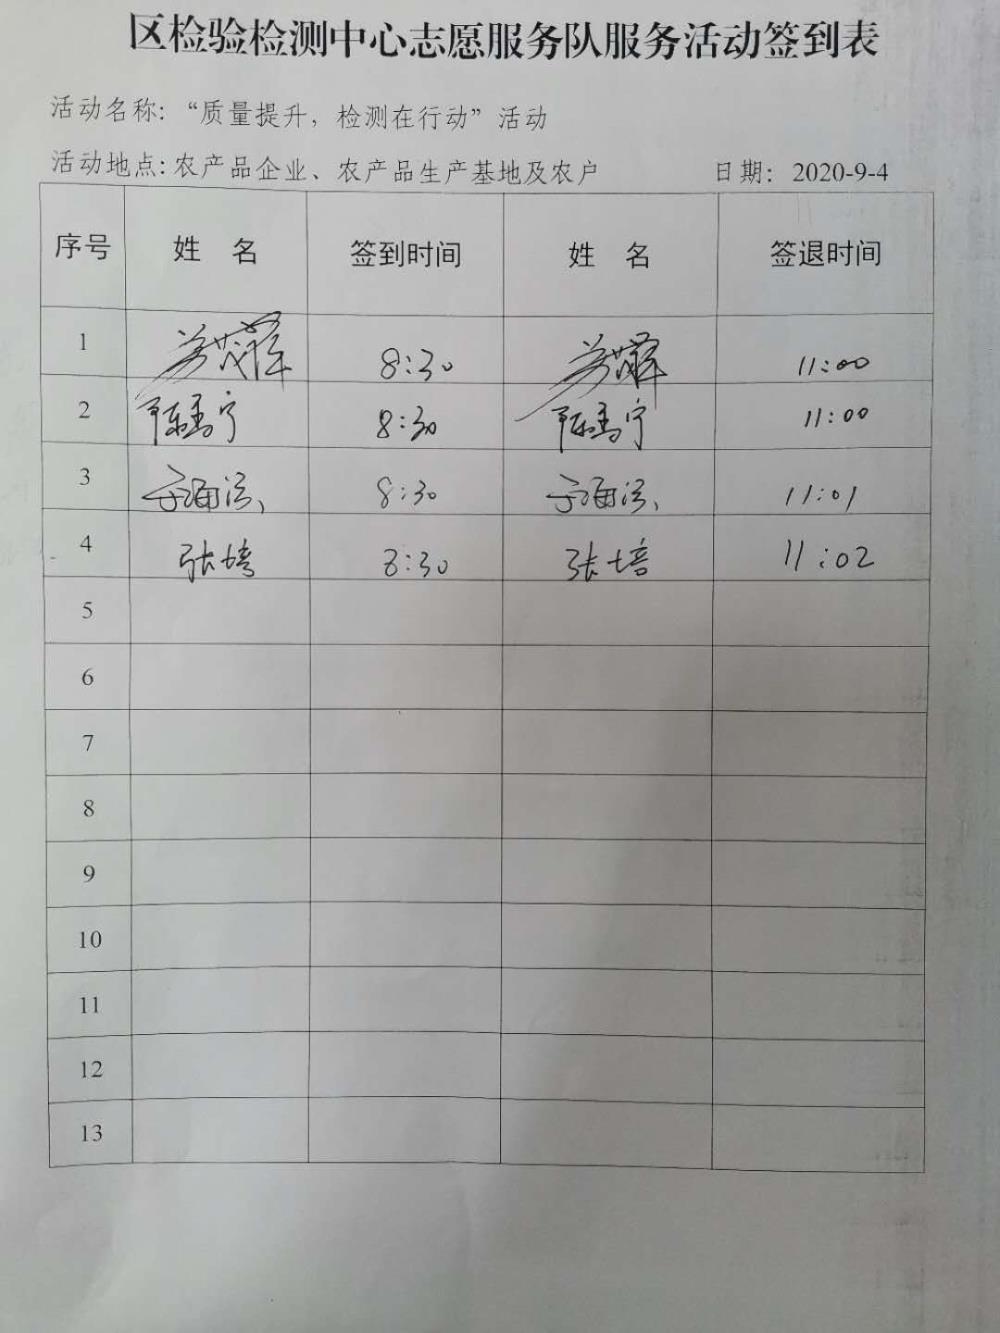 区检验检测中心志愿服务队服务活动签到表
活动名称:“质量提升，检测在行动”活动
活动地点:农产品企业、农产品生产基地及农户 日期: 2020-9-4
序号 姓 名 签到时间 姓 名 签退时间
1 8:30 11:00
2 8:30 11:00
3 8:30 11:01
4 张培 8:30 张培 11:02
5
6
7
8
9
10
11
12
13